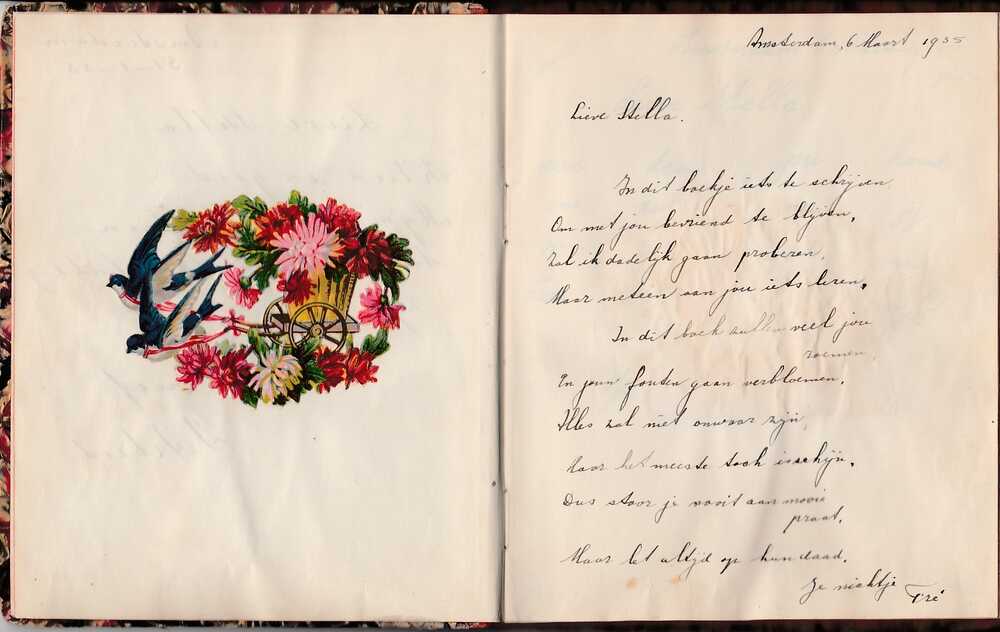 Amsterdam, 6 Maart 1935
Lieve Stella.
In dit boekje iets te schrijven,
Om met jou bevriend te blijven,
Zal ik dadelijk gaan proberen,
Maar meteen aan jou iets leren.
In dit boek zullen veel jou
roemen,
En jouw fouten gaan verbloemen.
Alles zal niet onwaar zijn,
Maar het meeste toch is schijn.
Dus stoor je nooit aan mooie
praat,
Maar let altijd op hun daad.
Je nichtje